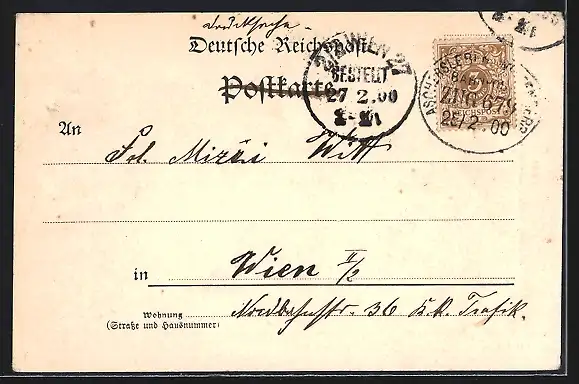 Drucksache.
Deutsche Reichspost
Postkarte
WIEN 27
BESTELLT
27 2.00
ASCHERSLEBEN
BAHNPOST
ZUG 679
25/2.00
3
REICHSPOST
An
Frl. Mizzi Witt
in
Wien II/2
Wohnung
(Straße und Hausnummer)
Nordbahnstr. 36 K.K. Trafik.